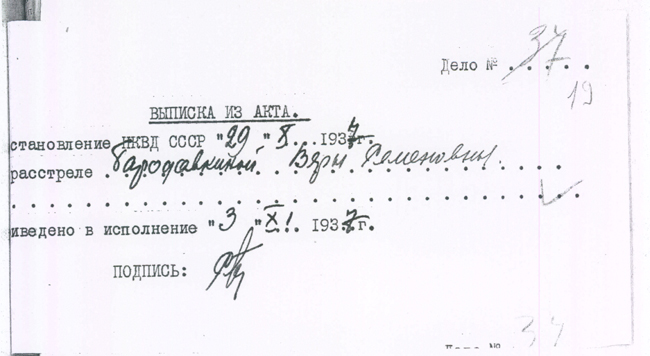 Дело № 37
19
ВЫПИСКА ИЗ АКТА.
становление НКВД СССР "29 "X...1937г.
расстреле Бородавкиной Веры Семеновны
иведено в исполнение "3 "XI. 1937г.
ПОДПИСЬ:
Дело № 37